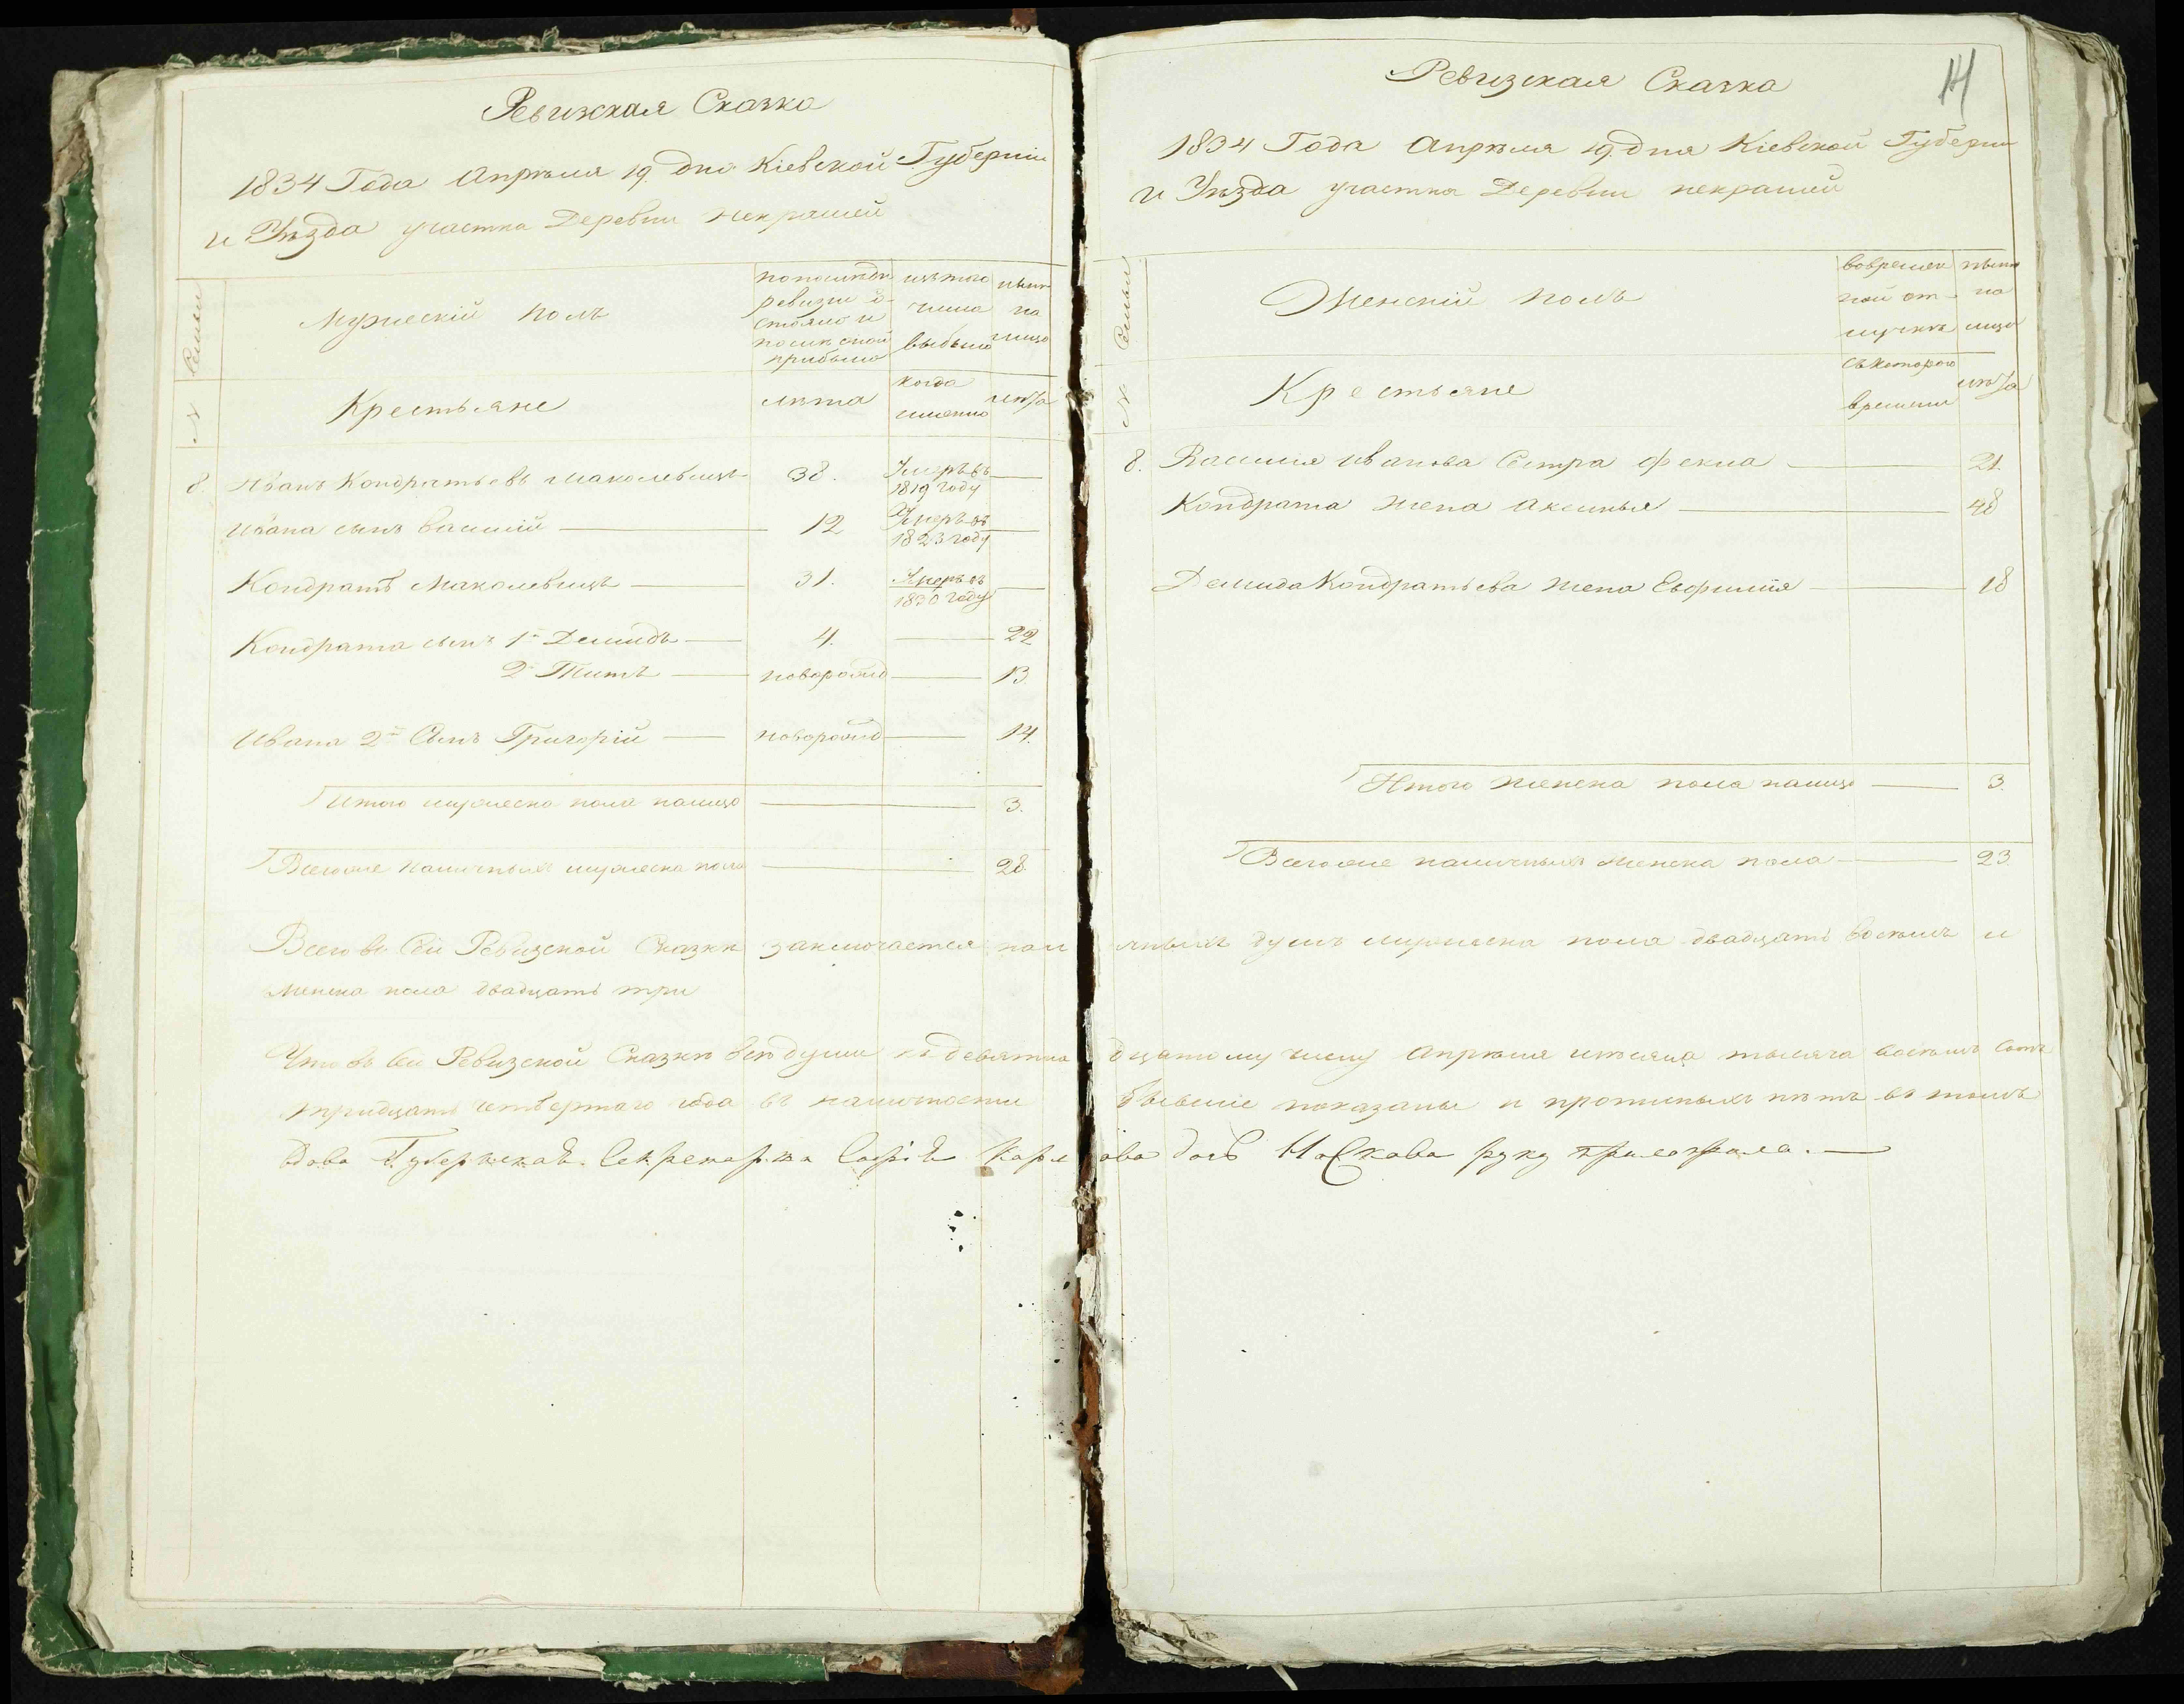 Ревизская Сказка
1834 Года Апрѣля 19. дня Кіевской Губерніи
и Уѣзда участка Деревни Некрашей
Семьи
№
Мужескій полъ
по последн
ревизіи со-
стояло и
после оной
прибыло
изъ того
числа
выбыло
ныне
на
лицо
Крестьяне
лѣта
когда
именно
лѣта
8. Иванъ Кондратьевъ Маколевецъ 38. Умеръ въ 1819 году
Ивана сынъ Василій 12 Умеръ въ 1823 году
Кондратъ Маколевецъ 31. Умеръ въ 1830 году
Кондрата сынъ 1й Демидъ 4. 22
2й Титъ новорожд 13.
Ивана 2й Сынъ Григорій новорожд 14.
Итого мужеска пола налицо 3.
Всегоже наличныхъ мужеска пола 28.
Ревизская Сказка
14
1834 Года Апрѣля 19. дня Кіевской Губерни
и Уѣзда участка Деревни некрашей
Семьи
№
Женскій полъ
вовремен
ной от-
лучкѣ
ныне
на
лицо
Крестьяне
съ котораго
времени
лѣта
8. Василія Иванова Сестра Фекла 21.
Кондрата жена Аксинья 48
Демида Кондратьева жена Евфимія 18
Итого женска пола налицо 3.
Всегоже наличныхъ женска пола 23.
Всего въ Сей Ревизской Сказки заключается наличныхъ душъ мужеска пола двадцать восемь и
женска пола двадцать три
Что въ сей Ревизской Сказкѣ всѣ души къ девятнадцатому числу Апрѣля мѣсяца тысяча восемь сотъ
тридцать четвертаго года въ наличности бывшіе показаны и прописныхъ нѣтъ въ томъ
вдова Губернская Секретарша Софія Карлова дочь Носкова руку приложила.